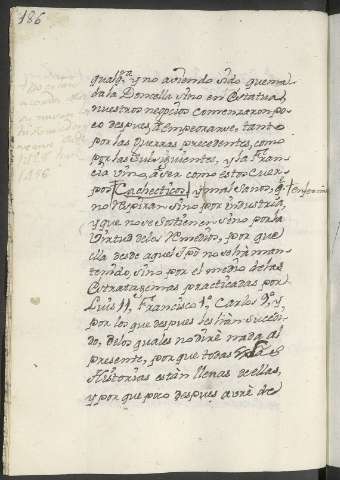 186
qualqra y no aviendo sido quema
da la Doncella sino en Estatua,
nuestros negocios comenzaron po
co despues a empeorarse tanto
por las guerras precedentes, como
por las subsiguientes, y la Fran
cia vino a ser como estos Cuer
pos Cachecticos y mal sanos, q.e
enfermos
no respiran sino por industria,
y que no se sostienen sino por la
virtud de los remedios, por que
ella desde aquel tpo no se ha man
tenido, sino por el medio de las
Estratagemas practicadas por
Luis 11, Francisco 1.o Carlos 9.o y
por los que despues les han sucedi
do, de los quales no diré nada al
presente, por que todas las
Historias están llenas de ellas,
y por que poco despues avré de